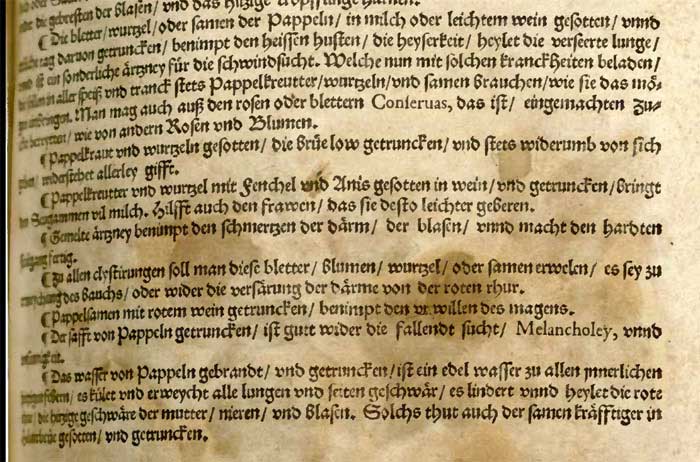 die gebresten der Blasen/ vnd das hitzige tröpfflinge harnen.
¶ Die bletter/ wurtzel/ oder samen der Pappeln/ in milch oder leichtem wein gesotten/ vnnd
tag daruon getruncken/ benimpt den heissen husten/ die heyserkeit/ heylet die verseerte lunge/
vnd ist ein sonderliche ärtzney für die schwindsucht. Welche nun mit solchen kranckheiten beladen/
in aller speiß vnd tranck stets Pappelkreutter/ wurtzeln/ vnd samen brauchen/ wie sie das mö-
Man mag auch auß den rosen oder blettern Conseruas, das ist/ eingemachten zu-
wie von andern Rosen vnd Blumen.
¶ Pappelkraut vnd wurtzeln gesotten/ die brüe low getruncken/ vnd stets widerumb von sich
widerstehet allerley gifft.
¶ Pappelkreutter vnd wurtzel mit Fenchel vnd Anis gesotten in wein/ vnd getruncken/ bringt
den Seugammen vil milch. Hilfft auch den frawen/ das sie desto leichter geberen.
¶ Gemelte ärtzney benimpt den schmertzen der därm/ der blasen/ vnnd macht den hardten
fertig.
¶ Zu allen clystirungen soll man diese bletter/ blumen/ wurtzel/ oder samen erwelen/ es sey zu
des bauchs/ oder wider die versärung der därme von der roten rhur.
¶ Pappelsamen mit rotem wein getruncken/ benimpt den vnwillen des magens.
¶ Der safft von Pappeln getruncken/ ist gutt wider die fallendt sucht/ Melancholey, vnnd
¶ Das wasser von Pappeln gebrandt/ vnd getruncken/ ist ein edel wasser zu allen jnnerlichen
es kület vnd erweycht alle lungen vnd seiten geschwär/ es lindert vnnd heylet die rote
die hitzige geschwäre der mutter/ nieren/ vnd blasen. Solchs thut auch der samen kräfftiger in
gesotten/ vnd getruncken.